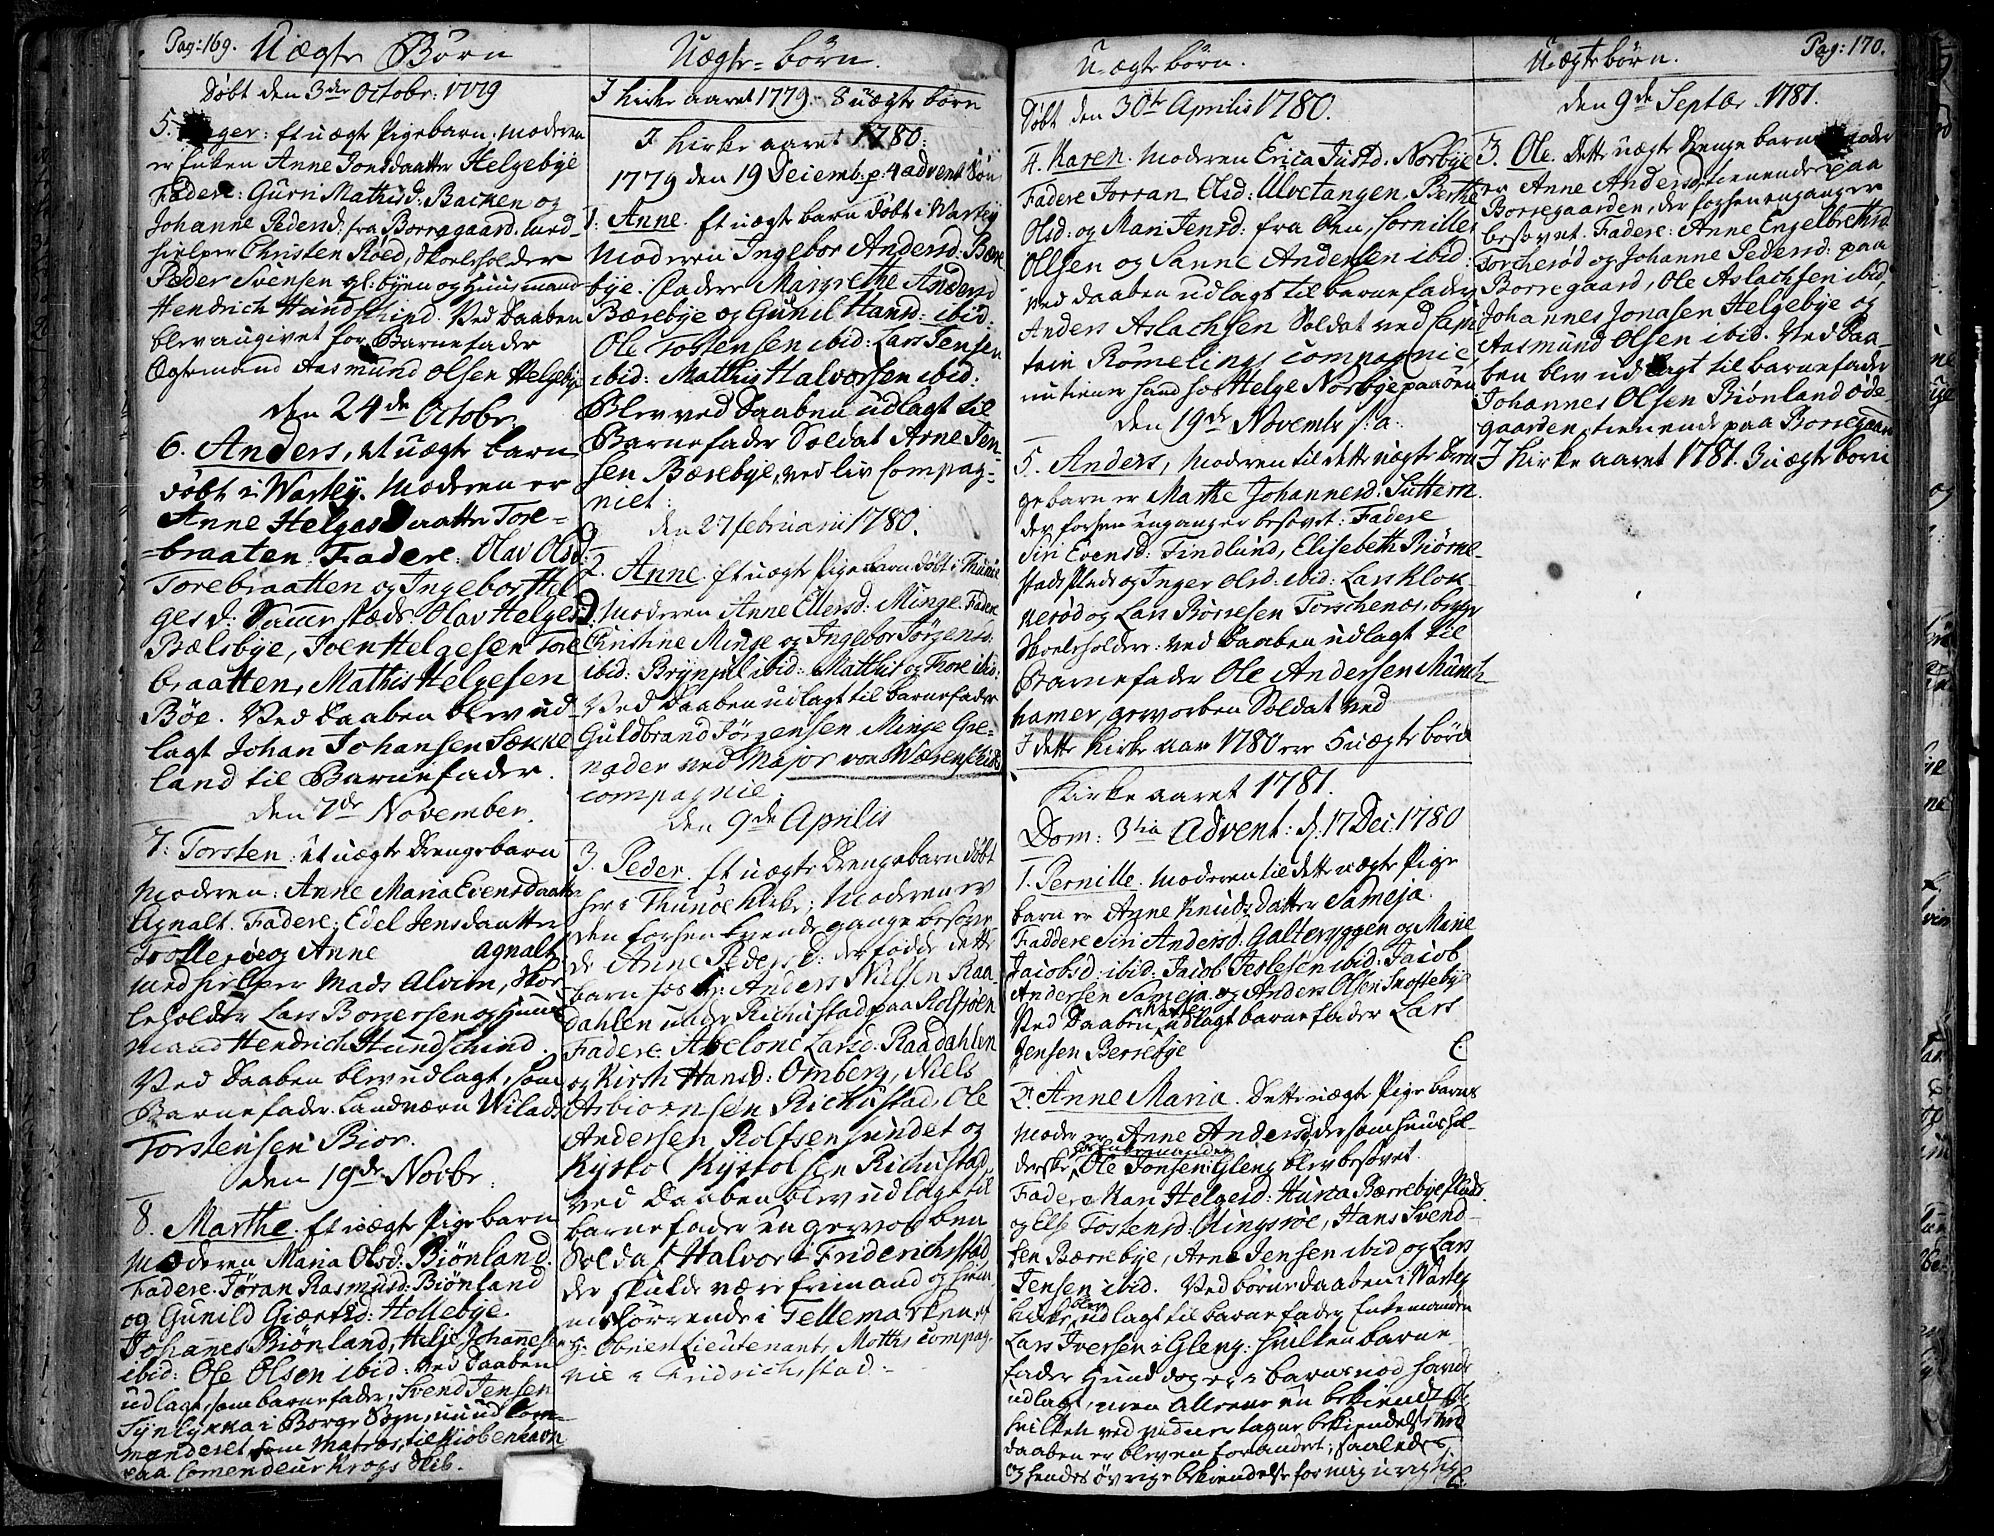 Pag: 169. Uægte Børn
Døbt den 3die Octobr: 1779
5. Inger: Et uægte Pigebarn. Moderen
er Enken Anne Jonsdaatter Helgebye
Faddere: Guri Mathisd: Backen og
Johanne Pedersd: fra Borregaard. med-
hielper Christen Røed, Skoeleholder
Peder Svensen gl: byen og Huusmand
Hendrich Hundschind. Ved Daaben
blev angivet for Barnefader
Ægtemand Aasmund Olsen Helgebye
den 24de Octobr.
6. Anders, et uægte barn
døbt i Warteg. Moderen er
Anne Helgas Daatter Tore-
braaten. Fadere: Olav Olsd:
Torebraatten og Ingebor Hel
gesd: Samestæds: Olav Helges:
Bælsbye, Joen Helgesen Tore
braatten, Mathis Helgesen
Böe. Ved Daaben blev ud-
lagt Johan Johansen Sække
land til Barnefader.
den 7de November.
7. Torsten: et uægte Drengebarn
Moderen: Anne Maria Evensdaatter
Agnalt. Fadere: Edel Jensdaatter
Trolleröe og Anne Agnalt
medhielper Mads Alvim, Skoe
leholder Lars Borgersen og Huus
mand Hendrich Hundschind.
Ved Daaben blev udlagt, som
Barnefader Landværn Wilads
Torstensen Bior.
den 19de Novbr:
8. Marthe. Et uægte Pigebarn
Moderen Maria Olsd: Biönland.
Fadere Jöran Rasmusd: Biönland
og Gunild Giærtsd: Hollebye.
Johannes Biönland, Helje Johannesen
ibid: Ole Olsen ibid: Ved Daaben
udlagt, som barnefader, Svend Jensen
Synlykka i Borge Sogn, nu ud Com-
manderet som Matros, til Kiöbenhavn
paa Comendeur Krogs Skib.
Uægte-börn.
I Kirke aaret 1779 - 8 uægte børn
I Kirke aaret 1780:
1779 den 19 Decemb: p: 4 advent Søn
1. Anne. Et uægte barn døbt i Warteg
Moderen Ingebor Andersd: Bære
bye. Fadere Margrethe Andersd
Bærebye og Gunil Hansd: ibid:
Ole Tostensen ibid: Lars Jensen
ibid: Mathis Halvorsen ibid:
Blev ved Daaben udlagt til
Barnefader Soldat Arne Jen-
sen Bærebye, ved liv Compag-
niet.
den 27 februarii 1780.
2. Anne. Et uægte Pigebarn døbt i Thunöe
Moderen Anne Ellersd: Minge. Fadere
Christine Minge og Ingebor Jörgensd:
ibid: Brynjel ibid: Mathis og Thore ibid:
Ved Daaben udlagt til barnefader
Guldbrand Jörgensen Minge Gre-
nader ved Major von Wærenschiöld
compagnie.
den 9de Aprilis
3. Peder. Et uægte Drengebarn døbt
her i Thunöe Kirke; Moderen er
den forhen tvende gange besove
de Anne Pedersd: der fødde dette
barn hos Anders Nielsen Raa-
dahlen under Richustad paa Rolfsöen
Fadere: Abelone Larsd: Raadahlen
og Kirsti Hansd: Omberg, Niels
Asbiornsen Richustad, Ole
Andersen Rolfsensundet og
Kystol Kystolsen Richustad
ved Daaben blev udlagt til
barnefader en gevorben
Soldat Halvor i Friderichstad
der skulde være Enmand og hiem
hörrende i Tellemarken af
H: Obriest Lieutenant Moths compag-
nie i Fridrichsstad.-
U-ægte börn.
Döbt den 30te Aprilis 1780.
4. Karen. Moderen Erica Justd. Norbye
Fadere Jorran Olsd: Ulvetangen, Berthe
Olsd: og Mari Jensd: fra Öen, Cornilles
Ollsen og Sanne Andersen ibid:
ved daaben udlagt til barnefader
Anders Aslachsen Soldat ved Capi
tein Römelings compagnie,
nu tiener hand hos Helge Norbye paa öen
den 19de Novembr s: a:
5. Anders, Moderen til dette uægte Dren
gebarn er Marthe Johannesd: Suttern
der forhen engang er besovet: Fadere
Siri Evensd: Findlund, Elisebeth Biörne
stads Plads og Inger Olsd: ibid: Lars Klok
kerød og Lars Börresen Torschenæs, begge
Skoeleholdere: Ved Daaben udlagt til
Barnefader Ole Andersen Münch
hamer, gevorben Soldat ved
I dette Kirke aar 1780 er 5 uægte börn
Kirke aaret 1781.
Dom: 3tia Advent: d: 17 Dec: 1780
1. Pernille. Moderen til dette uægte Pige
barn er Anne Knudsdatter Sameja.
Faddere Siri Andersd: Galteryggen og Marie
Jacobsd: ibid: Jacob Jeslesen ibid: Jacob
Andersen Sameja og Anders Olsen Snottebye
Ved Daaben udlagt barnefader Lars
Jensen Berrebye
2. Anne Maria. Dette uægte Pigebarns
Moder er Anne Andersd: der som huushol-
derske hos Enkemanden Ole Jonsen i Gleng blev besovet.
Fadere Mari Helgesd: Husta Bærrebye Plads
og Else Tostensd: Ringsröe, Hans Svend-
sen Bærrebye, Arne Jensen ibid og Lars
Jensen ibid. Ved börnedaaben i Warteg
Kirke blev udlagt til barnefader Enkemanden
Lars Iversen i Gleng: hvilken barne-
fader hun dog er i barnsnød havde
udlagt, men
hvilken ved vidner tagne bekiendelse ved
daaben er bleven forandret; saaledes,
og hendes övrige bekiendelse for mig urigtig
Uægte börn. Pag: 170.
den 9de Septbr. 1781.
3. Ole. Dette uægte Drenge barns Moder
er Anne Andersd: tienende paa
Borregaarden, der forhen engang er
besovet. Fadere: Anne Engelbrethsd:
Torcherød og Johanne Pedersd: paa
Borregaard, Ole Aslachsen ibid,
Johannes Jonasen Helgebye og
Aasmund Olsen ibid. Ved Daa-
ben blev udlagt til barnefader
Johannes Olsen Biönland öde-
gaarden, tienende paa Borregaard
I Kirke aaret 1781. 3 uægte børn